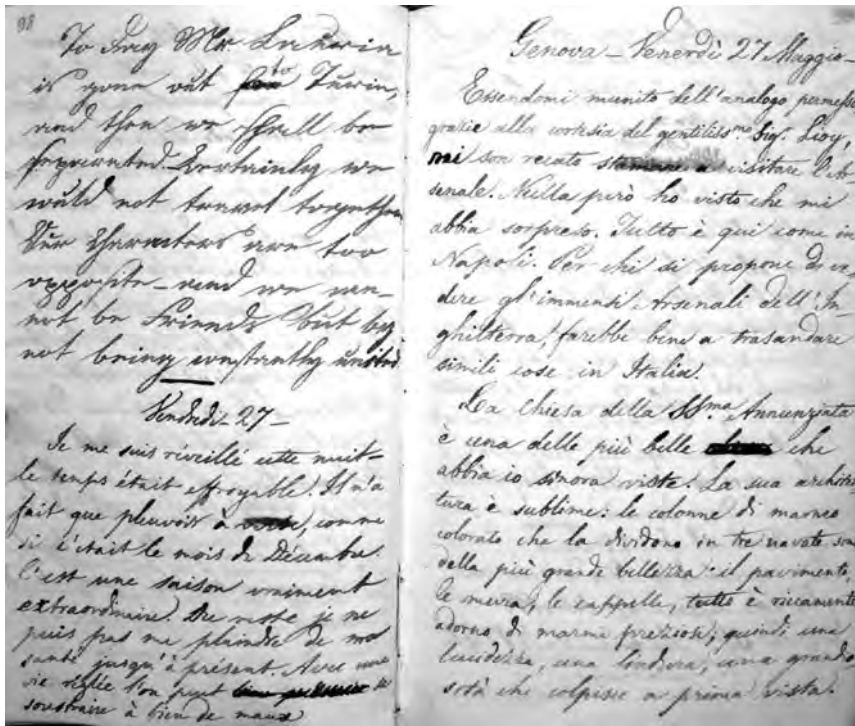 98
To day Mr. Landwin
is gone out to Turin,
and then we shall be
separated. Certainly we
would not travel together
Our Characters are too
opposite - and we can-
not be Friends but by
not being constantly united
Vendredi - 27 -
Je me suis réveillé cette nuit -
le temps était effroyable. Il n'a
fait que pleuvoir à, comme
si c'était le mois de Décembre.
C'est une saison vraiment
extraordinaire. Du reste je ne
puis pas me plaindre de ma
santé jusqu'à présent. Avec une
vie réglée l'on peut se
soustraire à bien de maux
Genova - Venerdì 27 Maggio -
Essendomi munito dell'analogo permesso
grazie alla cortesia del gentiliss.mo Sig. Lioy,
mi son recato visitare l'Ar-
senale. Nulla però ho visto che mi
abbia sorpreso. Tutto è qui come in
Napoli. Per chi si propone di ve-
dere gl'immensi Arsenali dell'In-
ghilterra, farebbe bene a trasandare
simili cose in Italia.
La Chiesa della SS.ma Annunziata
è una delle più belle che
abbia io sinora viste. La sua architet-
tura è sublime: le colonne di marmo
colorato che la dividono in tre navate son
della più grande bellezza: il pavimento,
le mura, le cappelle, tutto è riccamente
adorno di marmi preziosi; quindi una
lucidezza, una lindura, una grandio-
sità che colpisce a prima vista.